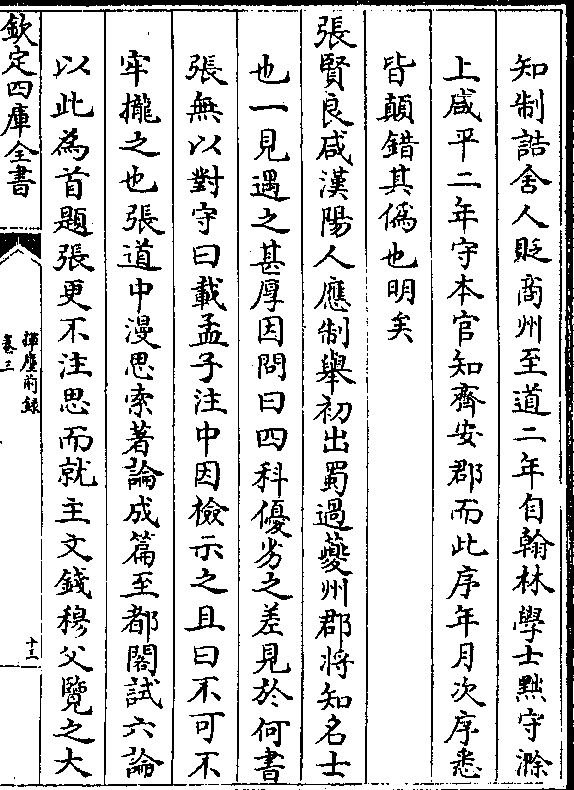 知制誥舍人貶商州至道二年自翰林學士黜守滁
上咸平二年守本官知齊安郡而此序年月次序悉
皆顛錯其偽也明矣
張賢良咸漢陽人應制舉初出蜀過夔州郡將知名士
也一見遇之甚厚因問曰四科優劣之差見於何書
張無以對守曰載孟子注中因檢示之且曰不可不
牢攏之也張道中漫思索著論成篇至都閣試六論
以此為首題張更不注思而就主文錢穆父覽之大
欽定四庫全書
揮麈前錄
卷三
十三